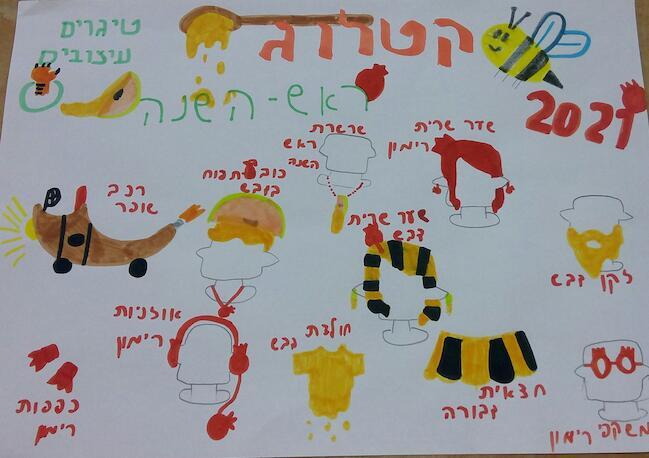 טיגרים
עיצובים
קטלוג
ראש-השנה
2021
שרשרת
ראש
השנה
שער שרית
רימון
רכב
שופר
כובע תפוח
בדבש
שער שרית
דבש
זקן דבש
אוזניות
רימון
חולצת דבש
חצאית
דבורה
כפפות
רימון
משקפי רימון